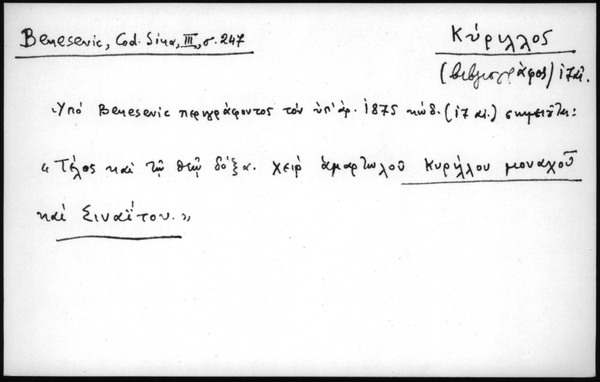 Benesevic, Cod. Sina, III, σ. 247
Κύριλλος
(βιβλιογράφος) 17 αἰ.
Ὑπό Benesevic περιγράφοντος τόν ὑπ' ἀρ. 1875 κώδ. (17 αἰ.) σημειοῦται:
« Τέλος καί τῷ θεῷ δόξα. χείρ ἁμαρτωλοῦ Κυρίλου μοναχοῦ
καί Σιναΐτου. »